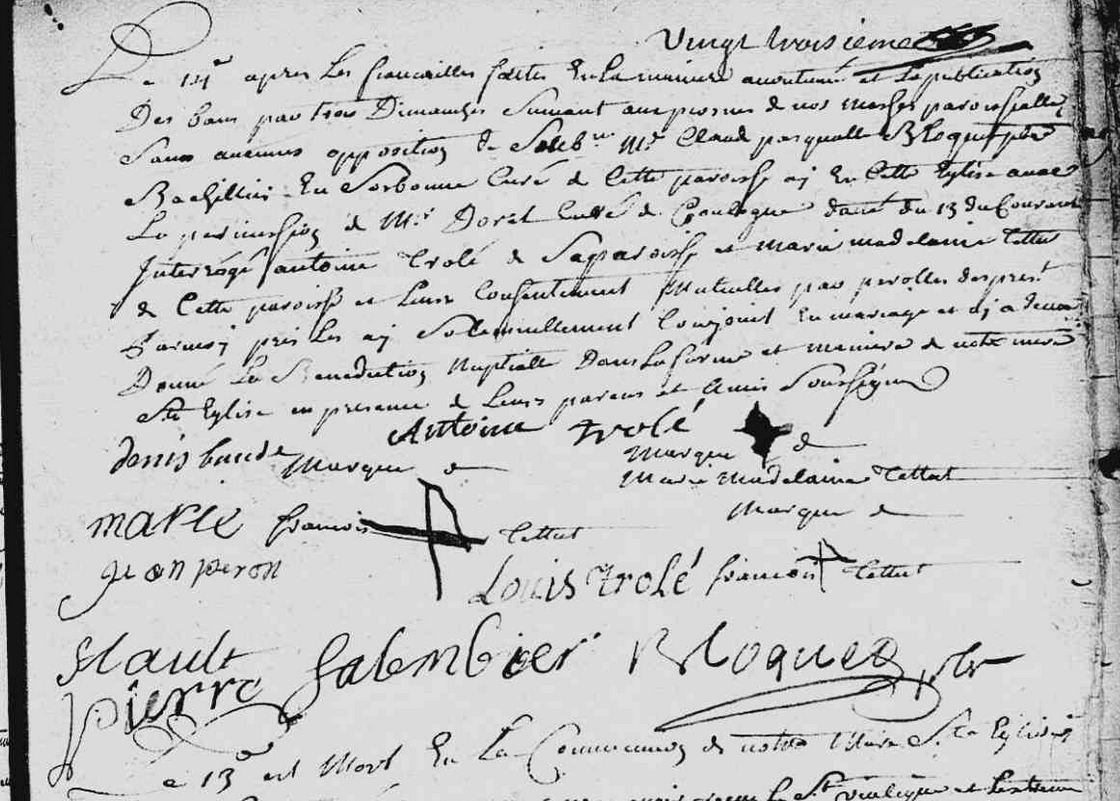 Vingt troisieme
Le 14e apres Les fiancailles faites En la maniere accoutumé et La publication
Des bans par trois Dimanches Suivant aux prosnes de nos messes paroissialles
Sans aucunes opposition Mr Claud pasquall Bloquet ptre
Bachellier En Sorbonne Curé de Cette paroisse aj En Cette Eglise avec
La permission de Mr Doret Curé de Coulogne datté du 13 du Courant
Interrogé antoine Trolé de Sa paroisse et marie madelaine Tettut
de Cette paroisse et Leurs Consentement Mutuelles par parolles de present
par moy pris Les aj Solemnellement Conjoint En mariage et aj
Donné La Benediction Nuptialle Dans La forme et maniere de notre mere
Ste Eglise en presence de Leurs parens et Amis Soussignes
Antoine trolé
denis baude Marque de
Marque de
Marie Madelaine Tettut
Marque de
marie francois Tettut
jean peron
Louis trolé francois Tettut
pierre galembier Bloquet ptr
Le 13e est Mort En La Communion de notre Mere Ste Eglise